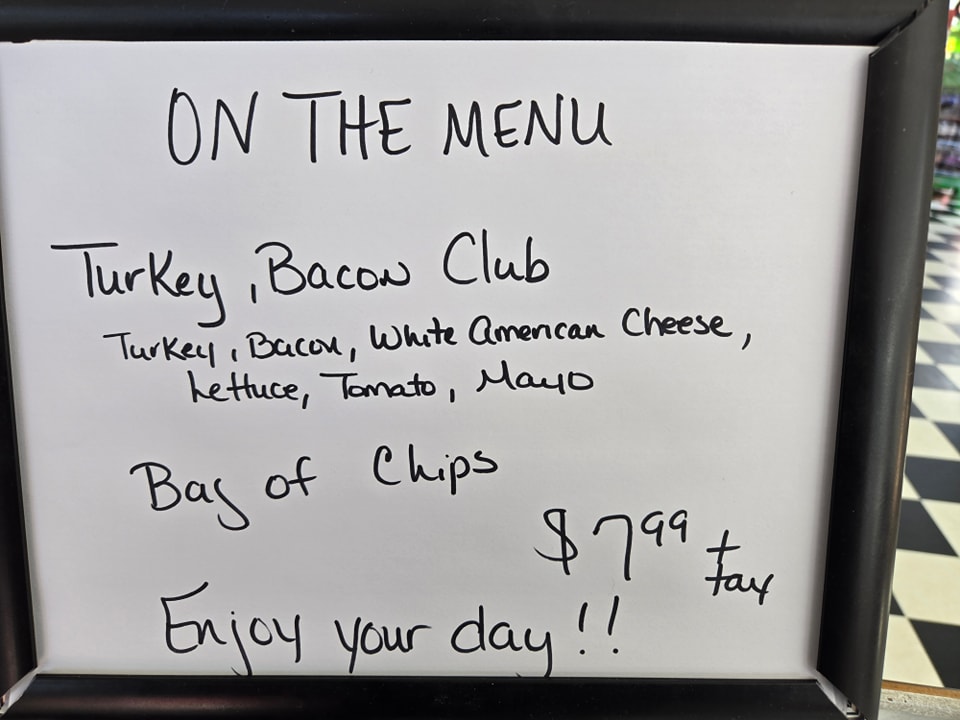 ON THE MENU
Turkey, Bacon Club
Turkey, Bacon, White American Cheese,
Lettuce, Tomato, Mayo
Bag of Chips
$7.99 + tax
Enjoy your day!!